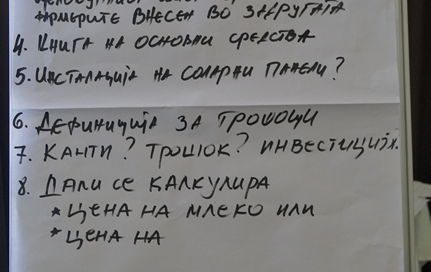 фармерите внесен во задругата
4. Книга на основни средства
5. Инсталација на соларни панели?
6. Дефиниција за трошоци
7. Канти? Трошок? Инвестиција.
8. Дали се калкулира
* цена на млеко или
* цена на